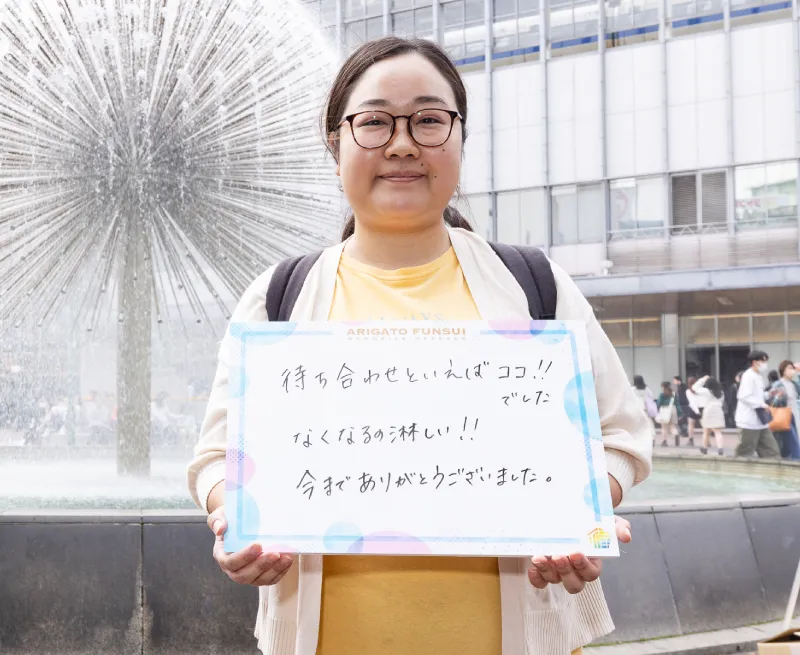 ARIGATO FUNSUI
MEMORIES MESSAGE
待ち合わせといえばココ!!
でした
なくなるの淋しい!!
今までありがとうございました。